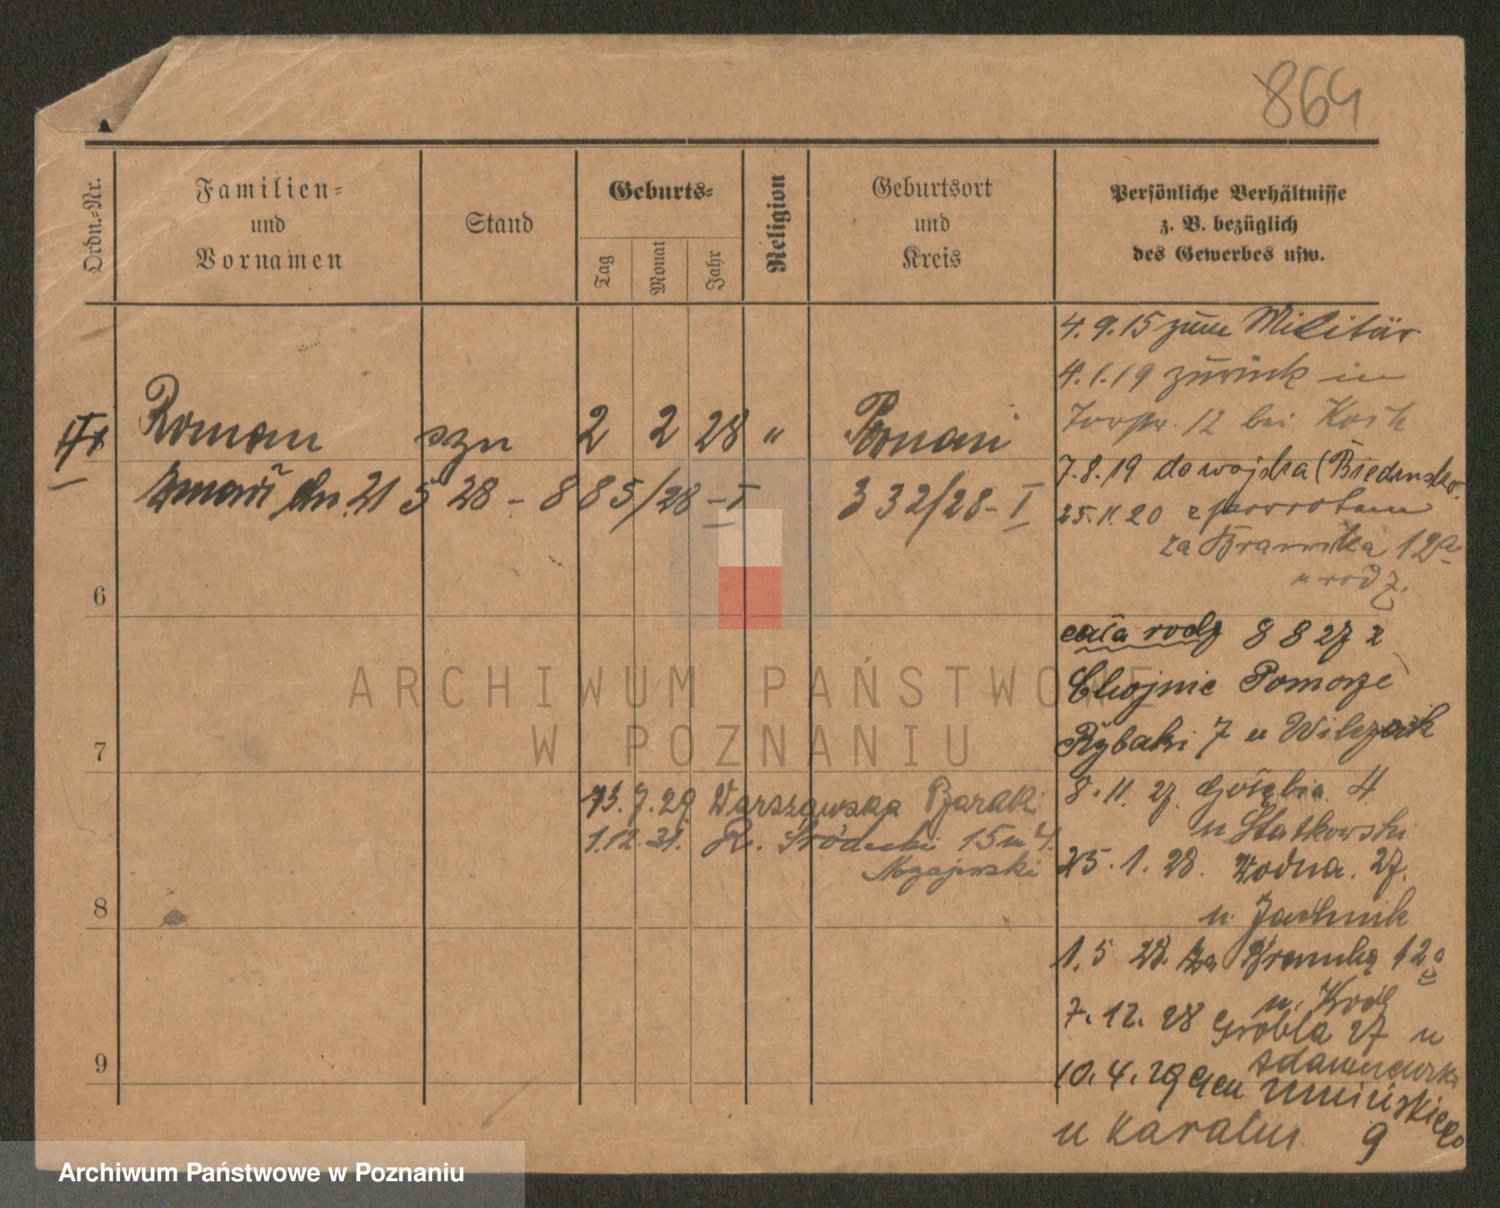 864
Ordn.-Nr.
Familien-
und
Vornamen
Stand
Geburts-
Tag
Monat
Jahr
Religion
Geburtsort
und
Kreis
Persönliche Verhältnisse
z. B. bezüglich
des Gewerbes usw.
Roman szn 2 2 28 " Poznań
zmarł dn. 21 5 28 - 885/28 - I 332/28 - I
6
7
8
9
4.9.15 zum Militär
4.1.19 zurück in
12 bei
7.8.19 do wojska (Biedrusko
25.11.20 z powrotem
za Bramką 12a
u rodz.
cała rodz 8 8 27 z
Chojnic Pomorze
Rybaki 7 u Wilczak
8.11.27. Gołębia 4
u Statkowski
25.1.28. Wodna. 27.
u. Jachnik
1.5 28. Za Bramką 12a
u. Rodz
7.12.28 Grobla 27 u
Adamczewski
10.4.29 Gen Umińskiego
u Karalus 9
13.7.29 Warszawska Baraki
1.12.31. R. Śródecki 15 m 4.
ARCHIWUM PAŃSTWOWE
W POZNANIU
Archiwum Państwowe w Poznaniu